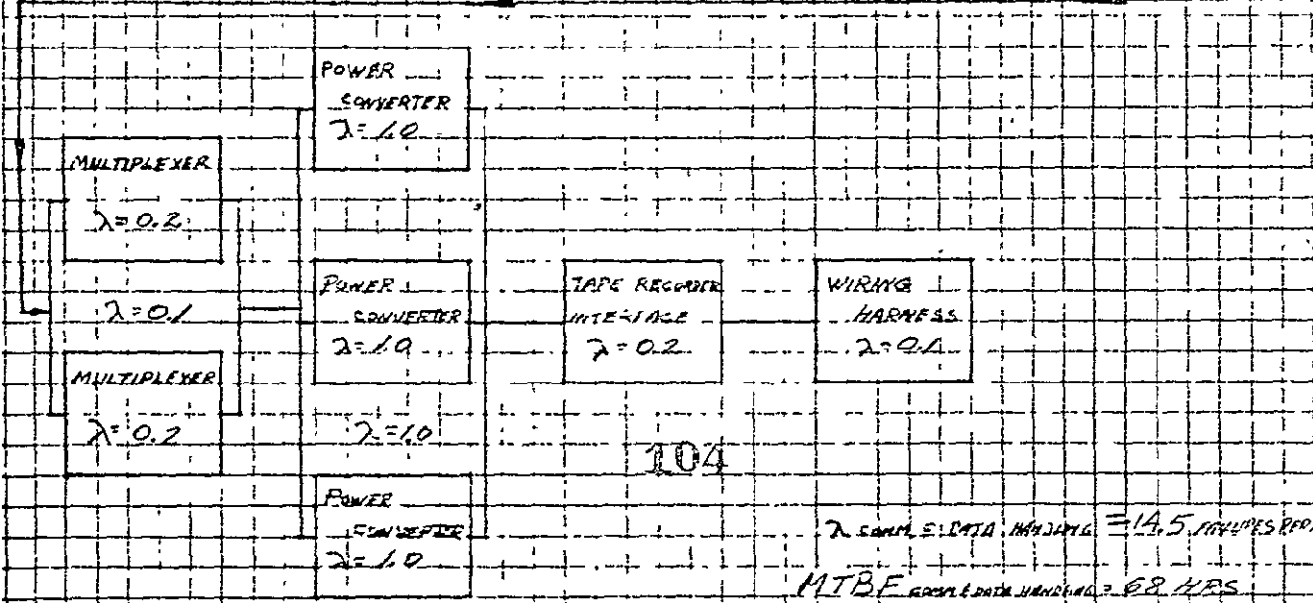 POWER
CONVERTER
λ=1.0
MULTIPLEXER
λ=0.2
λ=0.1
MULTIPLEXER
λ=0.2
POWER
CONVERTER
λ=1.0
λ=1.0
POWER
CONVERTER
λ=1.0
TAPE RECORDER
INTERFACE
λ=0.2
WIRING
HARNESS
λ=0.1
104
λ COMM & DATA HANDLING = 14.5 FAILURES PER
MTBF COMM & DATA HANDLING = 68 HRS